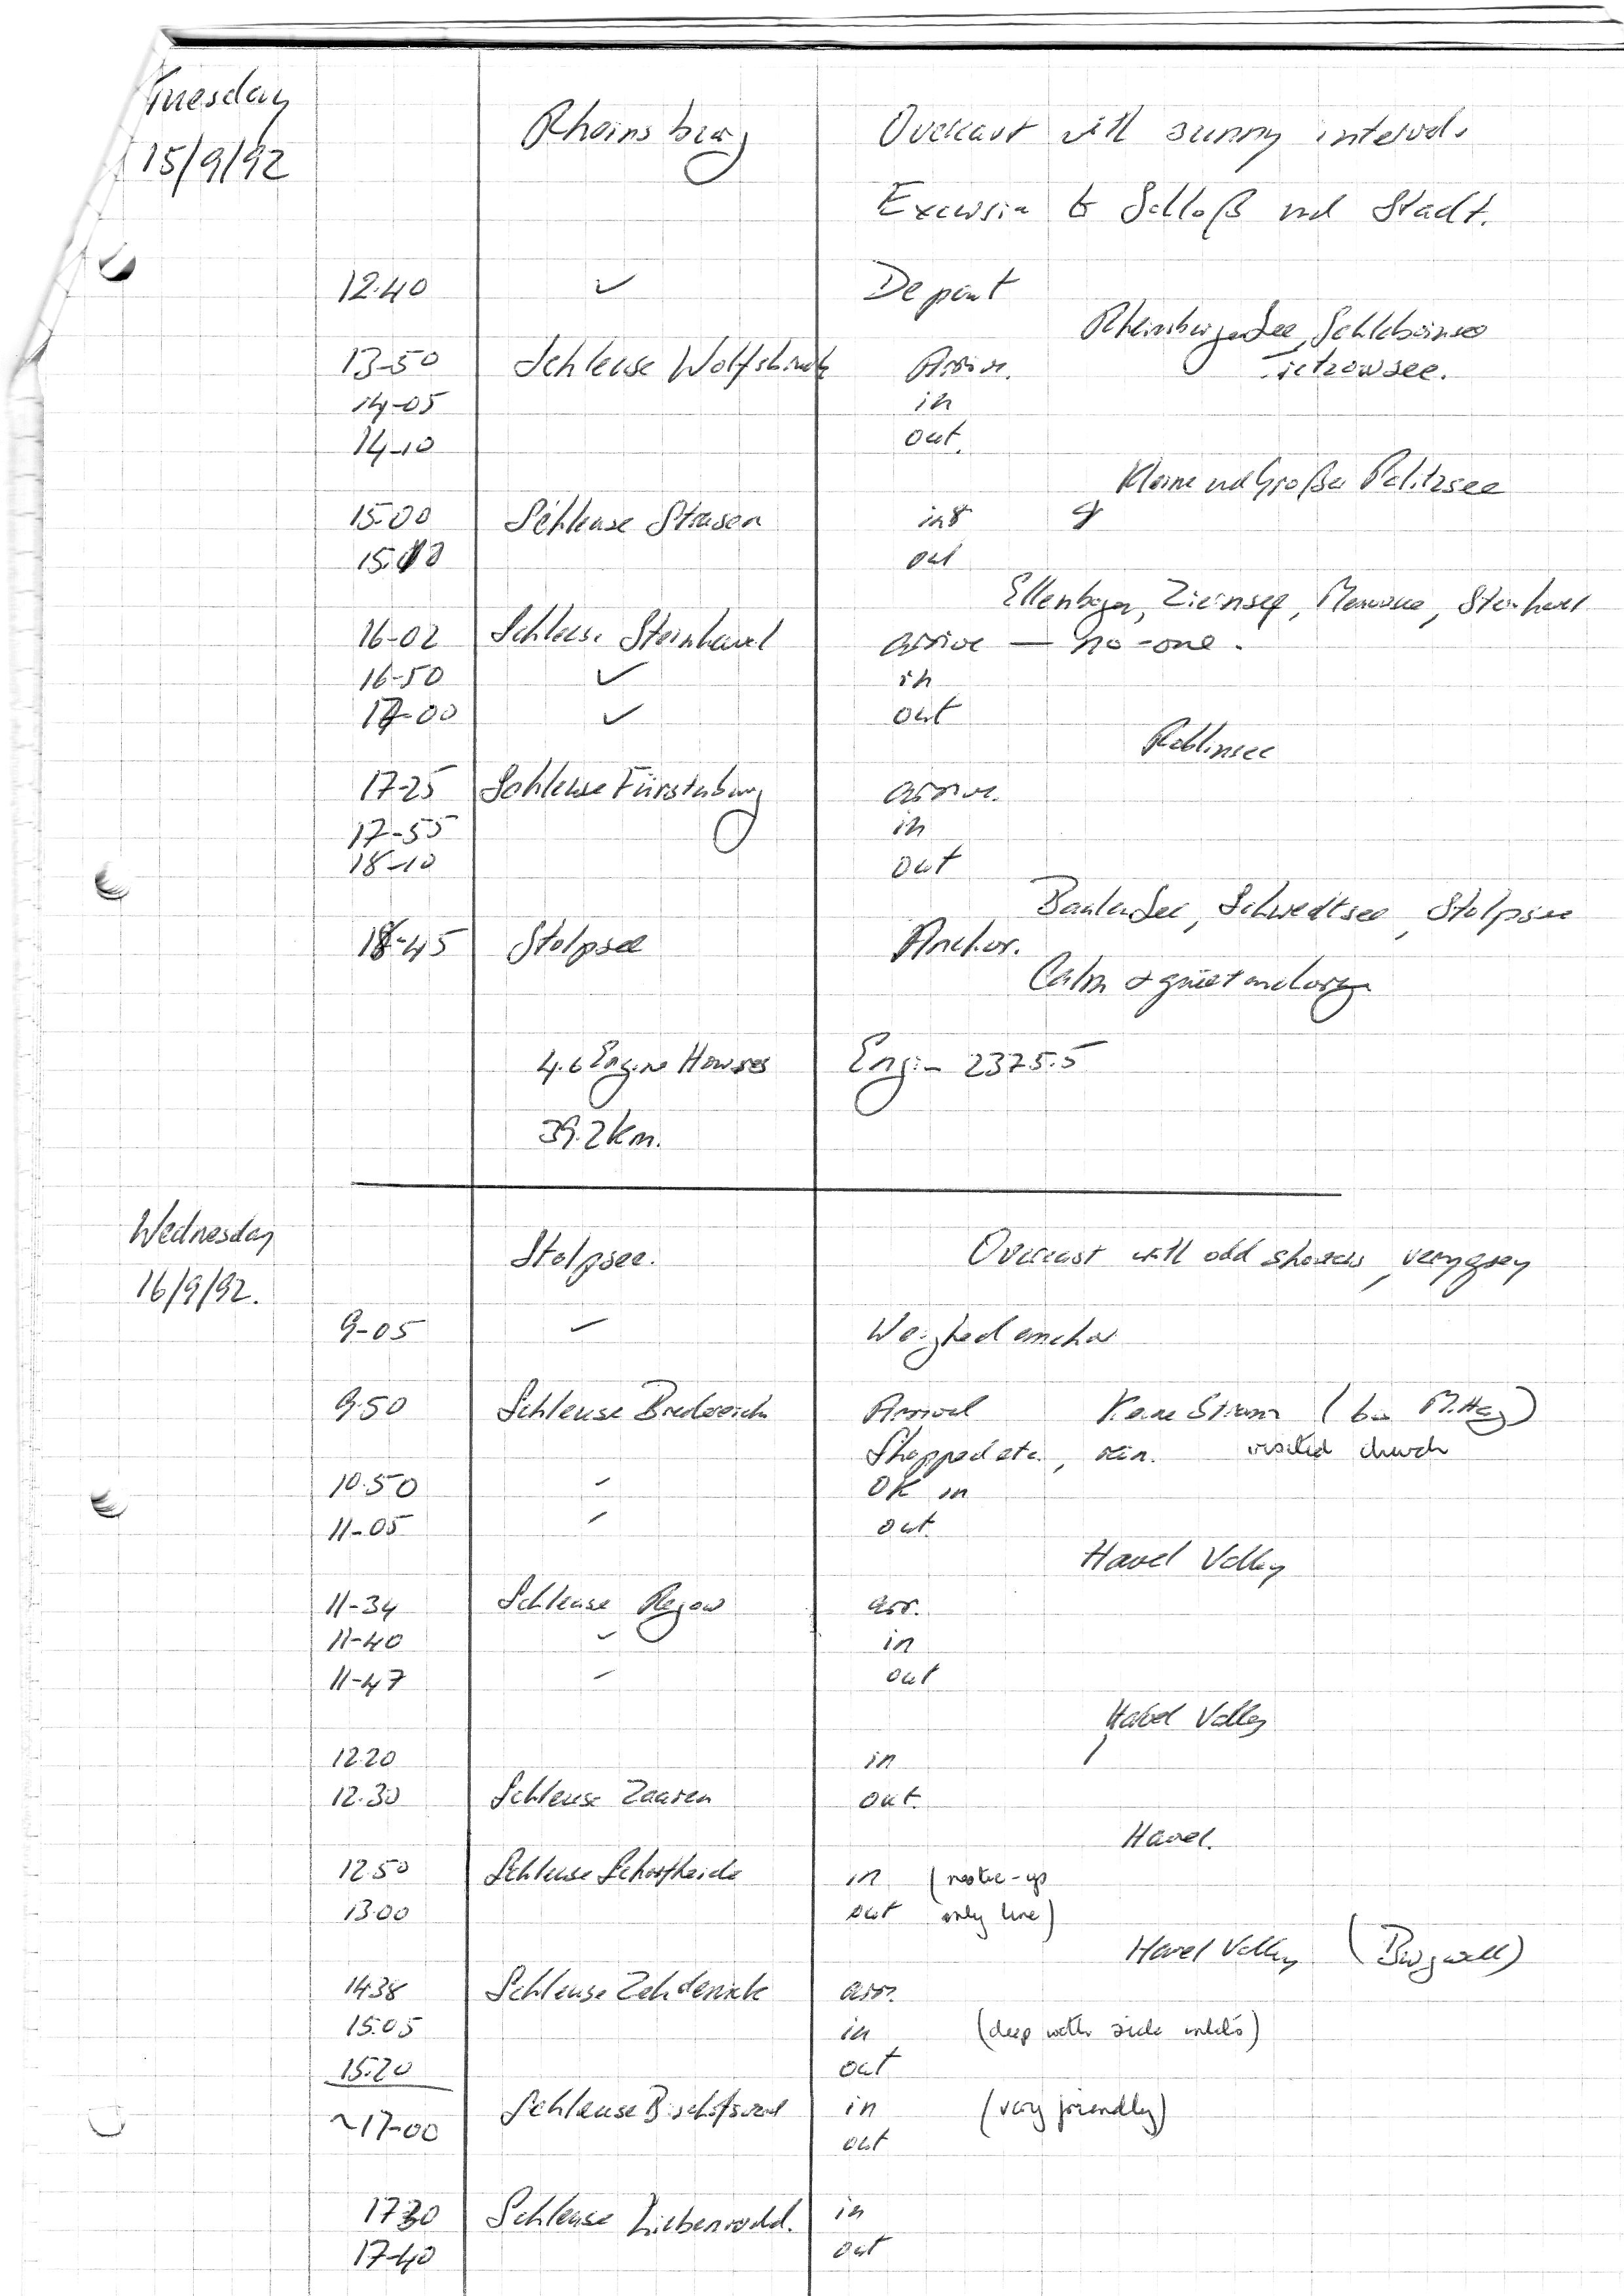 Tuesday
15/9/92
Rheinsberg
Overcast with sunny intervals
Excursion to Schloß und Stadt.
12.40 ✓ Depart
Rheinsberger See, Schlaborinsee
13-50 Schleuse Wolfsbruch Arrive. Tietzowsee.
14-05 in
14-10 out.
Kleine und Großer Palitzsee
15.00 Schleuse Strasen in
15.10 out
Ellenbogen, Ziernsee, Menowsee, Steinhavel
16-02 Schleuse Steinhavel arrive — no-one.
16-50 ✓ in
17-00 ✓ out
Röblinsee
17-25 Schleuse Fürstenberg arrive.
17-55 in
18-10 out
Baalensee, Schwedtsee, Stolpsee
18-45 Stolpsee Anchor.
Calm & quiet anchorage
4.6 Engine Hours Engine 2375.5
39.2 km.
Wednesday
16/9/92.
Stolpsee. Overcast with odd showers, very grey
9-05 Weighed anchor
9.50 Schleuse Bredereich Arrived Kein Strom (bis Mittag)
Shopped etc., rain. visited church
10.50 OK in
11-05 out.
Havel Valley
11-34 Schleuse Regow arr.
11-40 ✓ in
11-47 out
Havel Valley
12.20 in
12.30 Schleuse Zaaren out.
Havel.
12.50 Schleuse Schorfheide in (no tie-up
13.00 out only line)
Havel Valley (Burgwall)
14.38 Schleuse Zehdenick arr.
15.05 in (deep with side inlets)
15.20 out
~17-00 Schleuse Bischofswerd in (very friendly)
out
17.30 Schleuse Liebenwald. in
17-40 out